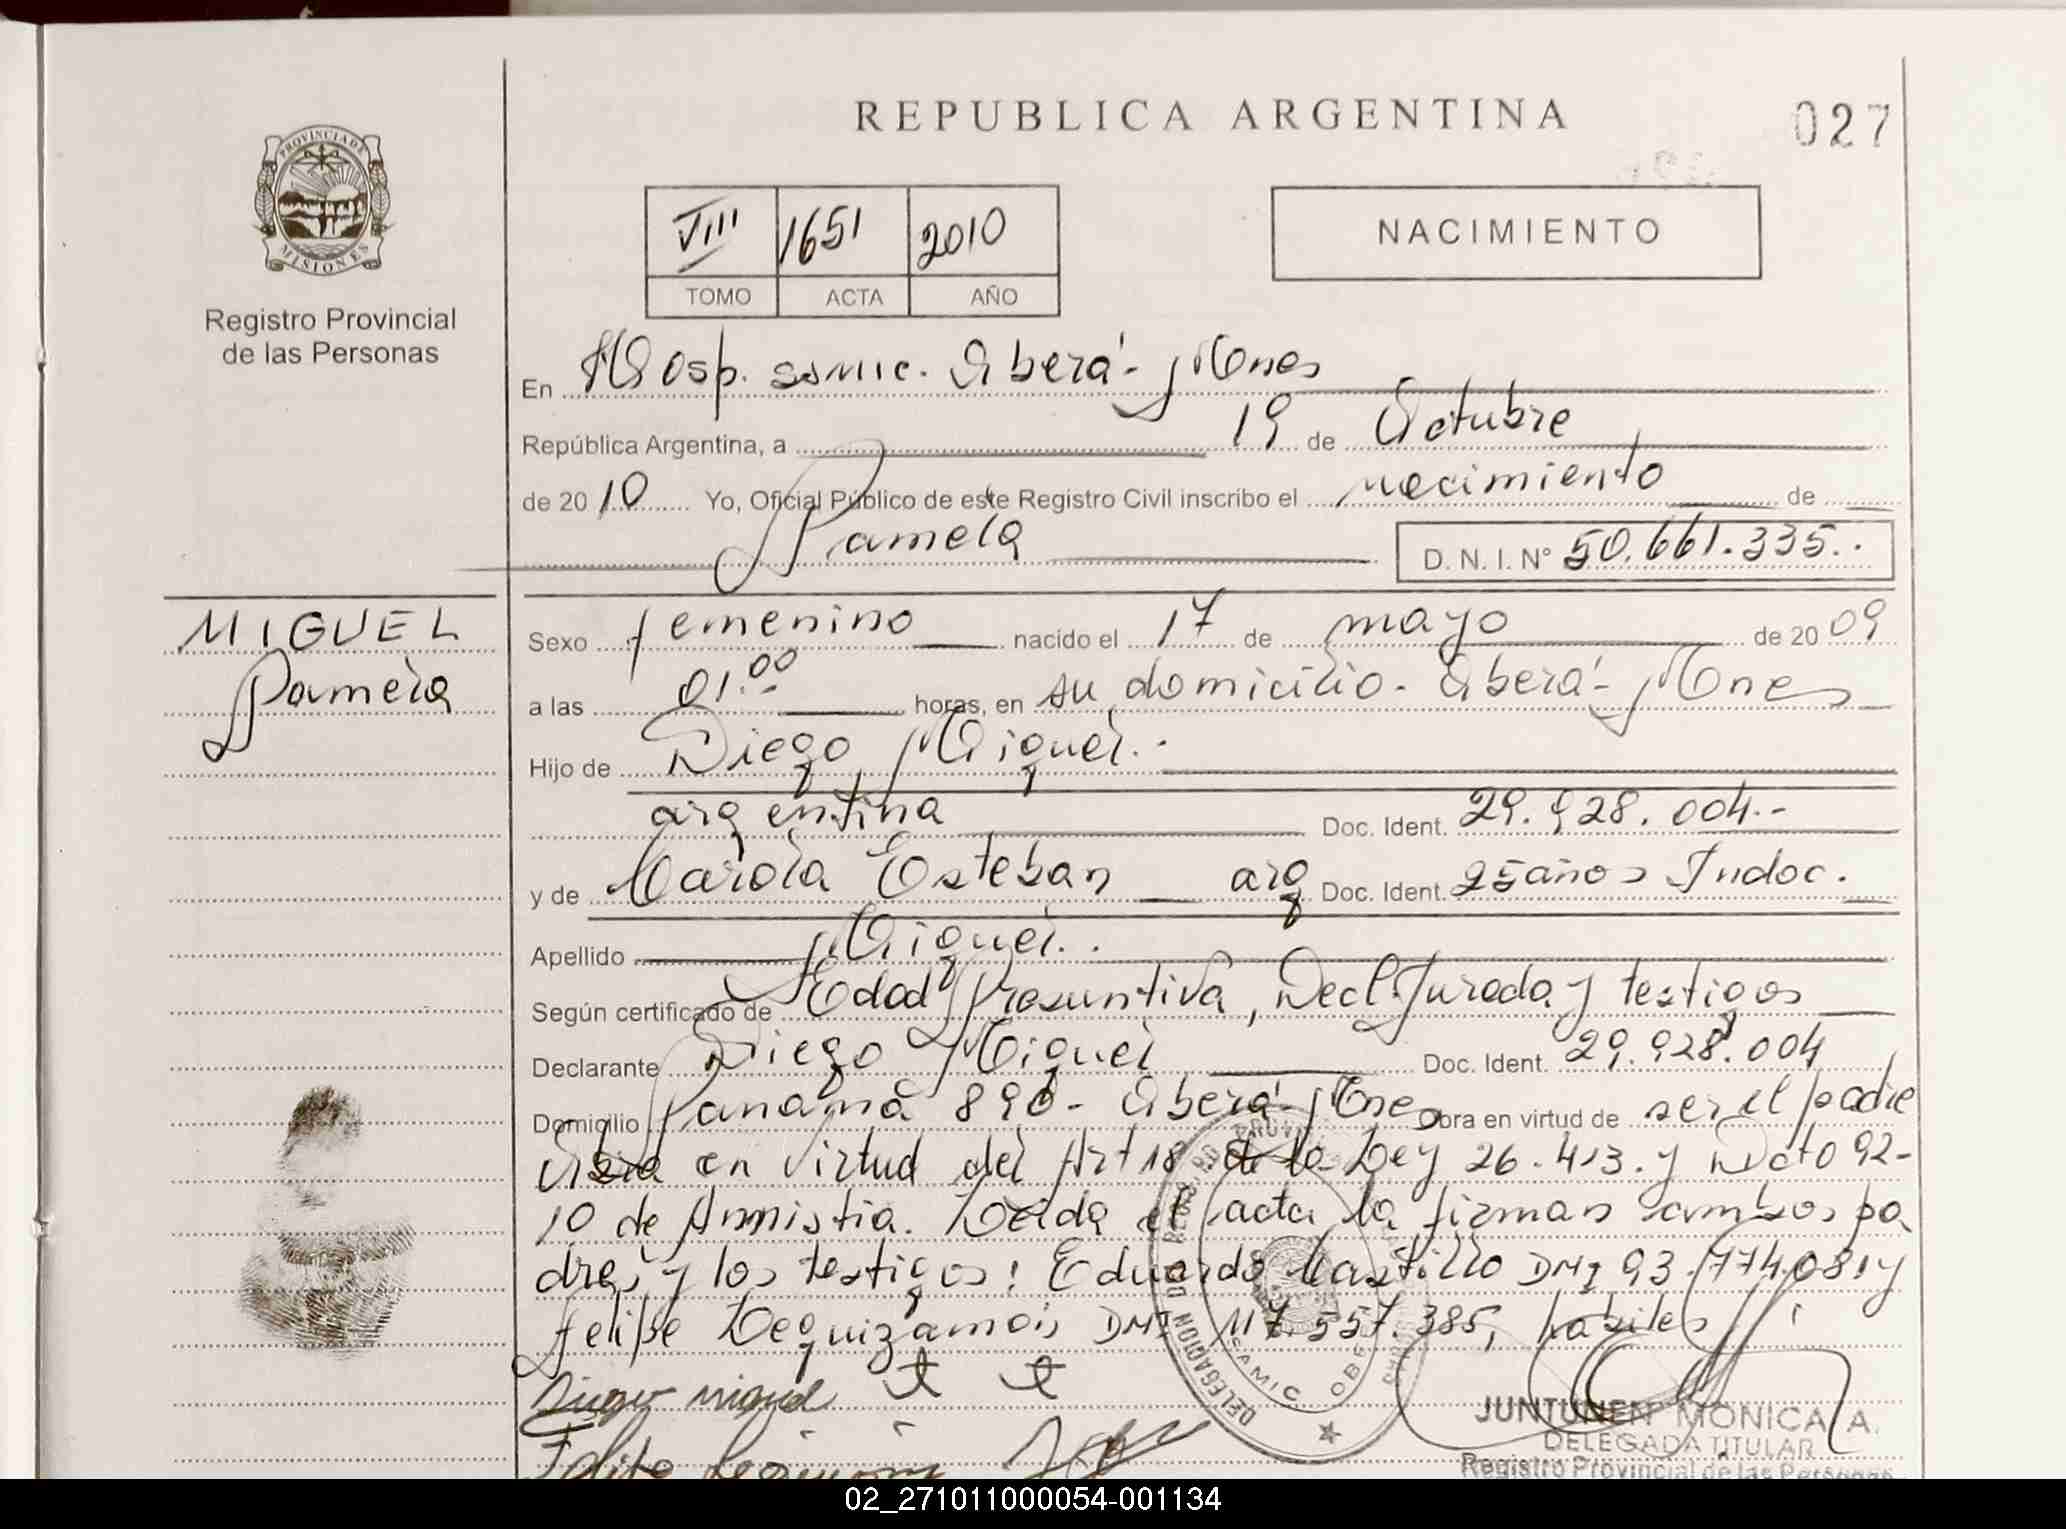 REPUBLICA ARGENTINA
027
PROVINCIA DE
MISIONES
Registro Provincial
de las Personas
VIII 1651 2010
TOMO ACTA AÑO
NACIMIENTO
En Hosp. SAMIC. Oberá - Mnes
República Argentina, a 19 de Octubre
de 2010 Yo, Oficial Público de este Registro Civil inscribo el nacimiento de
Pamela D. N. I. N° 50.661.335..
MIGUEL
Pamela
Sexo femenino nacido el 17 de mayo de 2009
a las 01.00 horas, en su domicilio - Oberá - Mnes
Hijo de Diego Miguel.-
argentina Doc. Ident. 29.928.004.-
y de Carola Esteban arg Doc. Ident. 25 años Indoc.
Apellido Miguel..
Según certificado de Edad Presuntiva, Decl. Jurada y testigos
Declarante Diego Miguel Doc. Ident. 29.928.004
Domicilio Panamá 890 - Oberá - Mnes Obra en virtud de ser el padre
Obra en virtud del Art 18 de la Ley 26.413. y Dcto 92-
10 de Amnistia. Leida el acta la firman ambos pa
dres y los testigos: Eduardo Castillo DNI 93.774.081 y
Felipe Leguizamóis DNI 117.557.385, habiles
Diego miguel
DELEGACION DE
SAMIC OBE
JUNTUNEN MONICA A.
DELEGADA TITULAR
Registro Provincial de las Personas
02_271011000054-001134